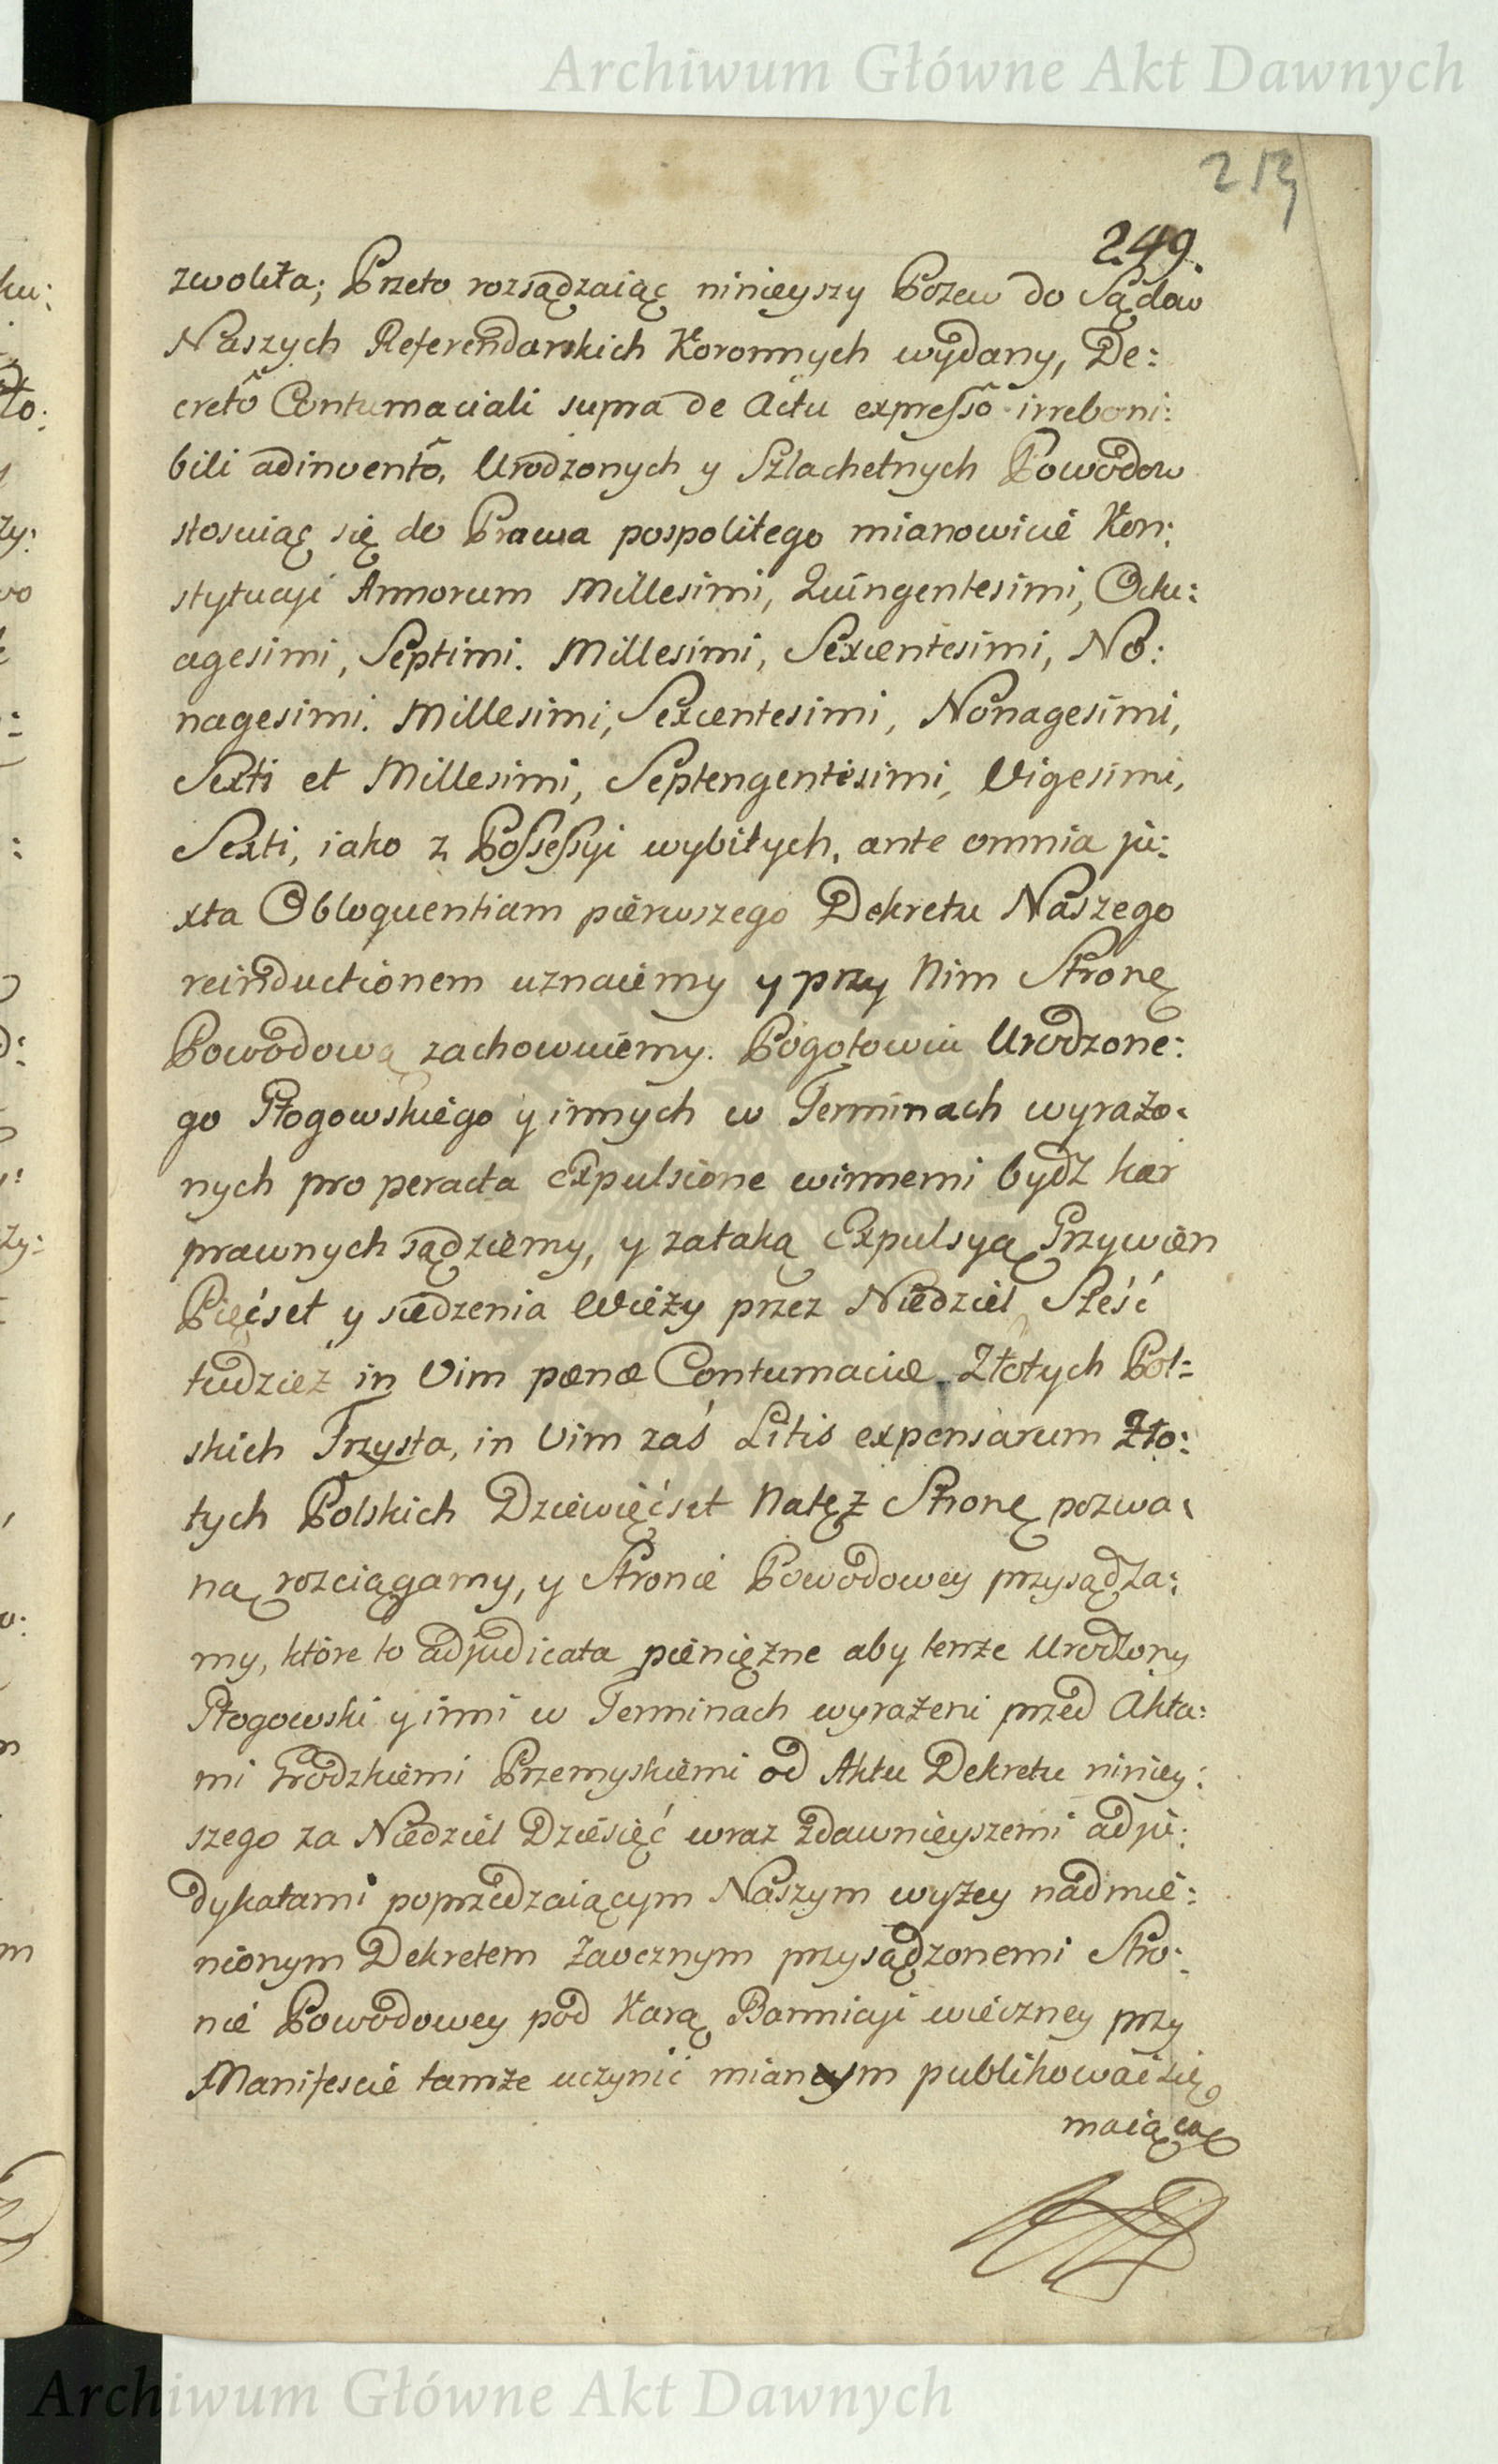 Archiwum Główne Akt Dawnych
213
249.
zwoliła; Przeto rozsądzaiąc ninieyszy Pozew do Sądow
Naszych Referendarskich Koronnych wydany, De:
cretô Contumaciali supra de Actu expressô irreboni:
bili adinventô, Urodzonych y Szlachetnych Powodow
stosuiąc się do Prawa pospolitego mianowicie Kon:
stytucyi Annorum Millesimi, Quingentesimi, Octu:
agesimi, Septimi. Millesimi, Sexcentesimi, No:
nagesimi. Millesimi, Sexcentesimi, Nonagesimi,
Sexti et Millesimi, Septengentesimi, Vigesimi,
Sexti, iako z Possessyi wybitych, ante omnia ju:
xta Obloquentiam pierwszego Dekretu Naszego
reinductionem uznaiemy y przy Nim Stronę
Powodową zachowuiemy. Pogotowiu Urodzone:
go Płogowskiego y innych w Terminach wyrażo:
nych pro peracta expulsione winnemi bydź kar
prawnych sądziemy, y zataką Expulsyą Grzywien
Pięćset y siedzenia Wieży przez Niedziel Sześć
tudzież in Vim pœnæ Contumaciæ Złotych Pol:
skich Trzysta, in Vim zaś Litis expensarum Zło:
tych Polskich Dziewięćset Natęż Stronę pozwa:
ną rozciągamy, y Stronie Powodowey przysądza:
my, które to adjudicata pieniężne aby tenże Urodzony
Płogowski y inni w Terminach wyrażeni przed Akta:
mi Grodzkiemi Przemyskiemi od Aktu Dekretu niniey:
szego za Niedziel Dziesięć wraz zdawnieyszemi adju:
dykatami poprzedzaiącym Naszym wyżey nadmie:
nionym Dekretem Zaocznym przysądzonemi Stro:
nie Powodowey pod Karą Bannicyi wieczney przy
Manifescie tamże uczynić mianym publikować się
maiącą
Archiwum Główne Akt Dawnych